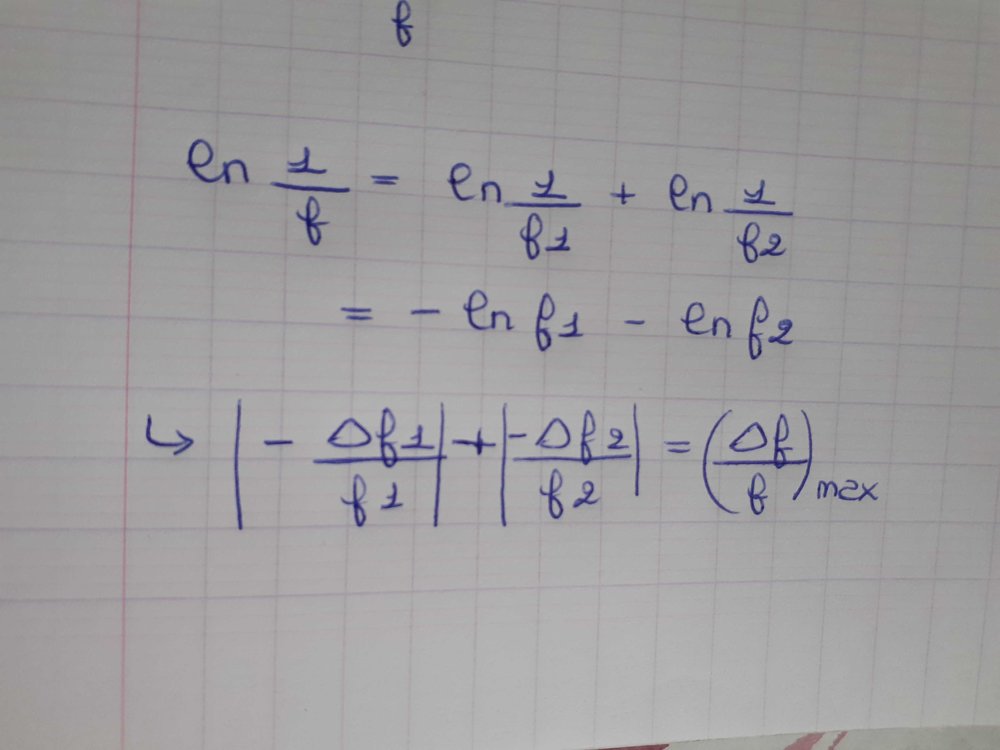 f
ln 1/f = ln 1/f1 + ln 1/f2
= - ln f1 - ln f2
↳ |- Δf1/f1| + |-Δf2/f2| = (Δf/f)max